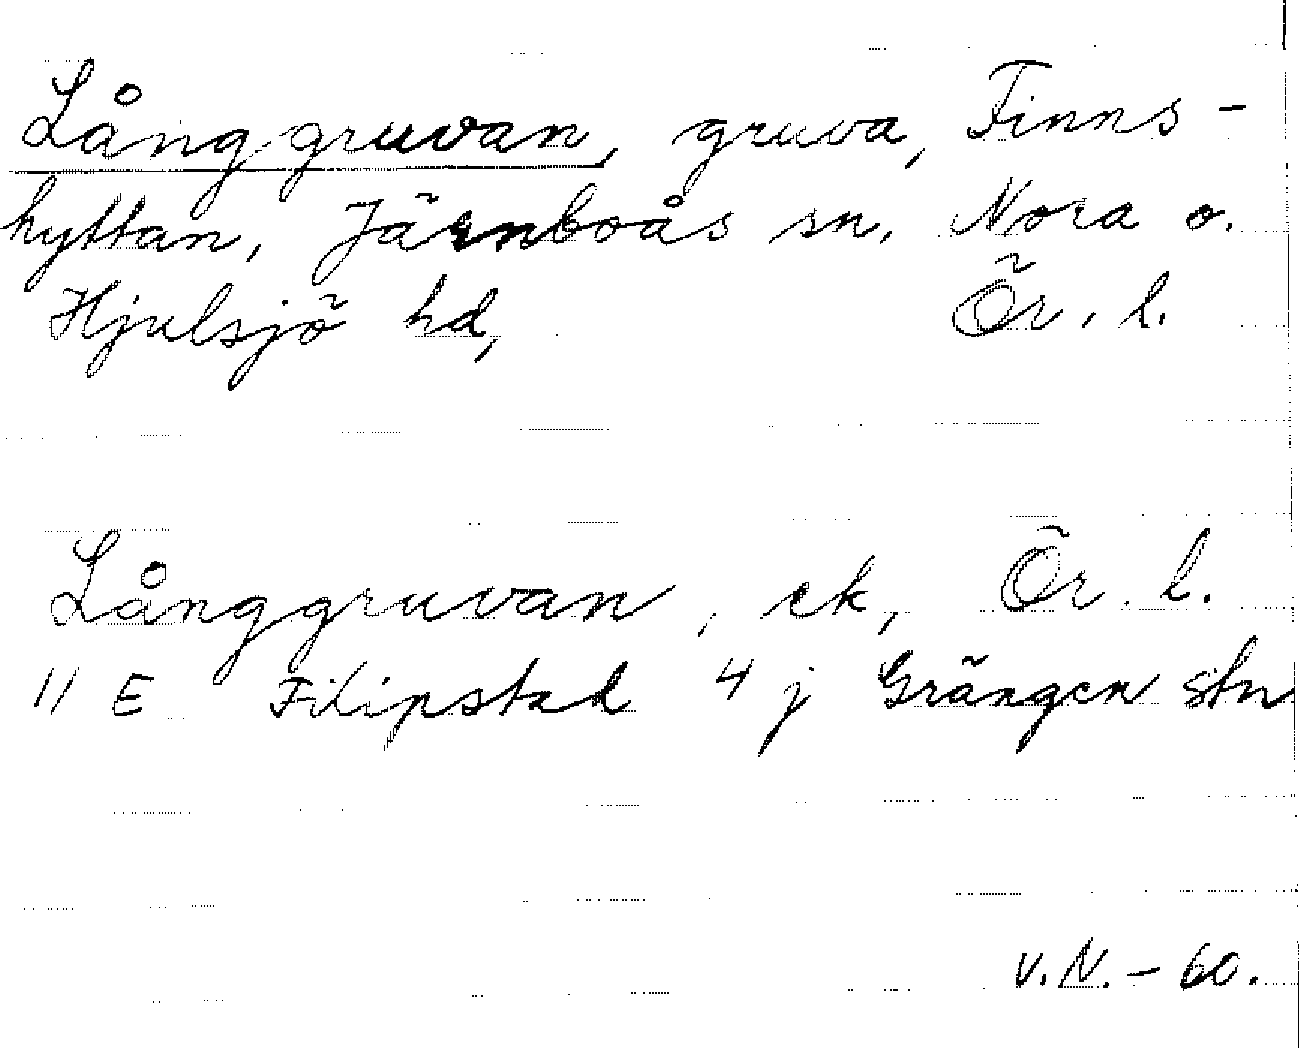 Långgruvan, gruva, Finns-
hyttan, Järnboås sn, Nora o.
Hjulsjö hd, Ör. l.
Långgruvan, ek, Ör. l.
11 E Filipstad 4 j Grängen stn
v.N. - 60.